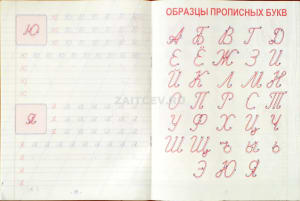 Ю
Я
ZAITCEV.RU
ОБРАЗЦЫ ПРОПИСНЫХ БУКВ
А Б В Г Д
Е Ё Ж З И
Й К Л М Н
О П Р С Т
У Ф Х Ц Ч
Ш Щ ъ ы ь
Э Ю Я